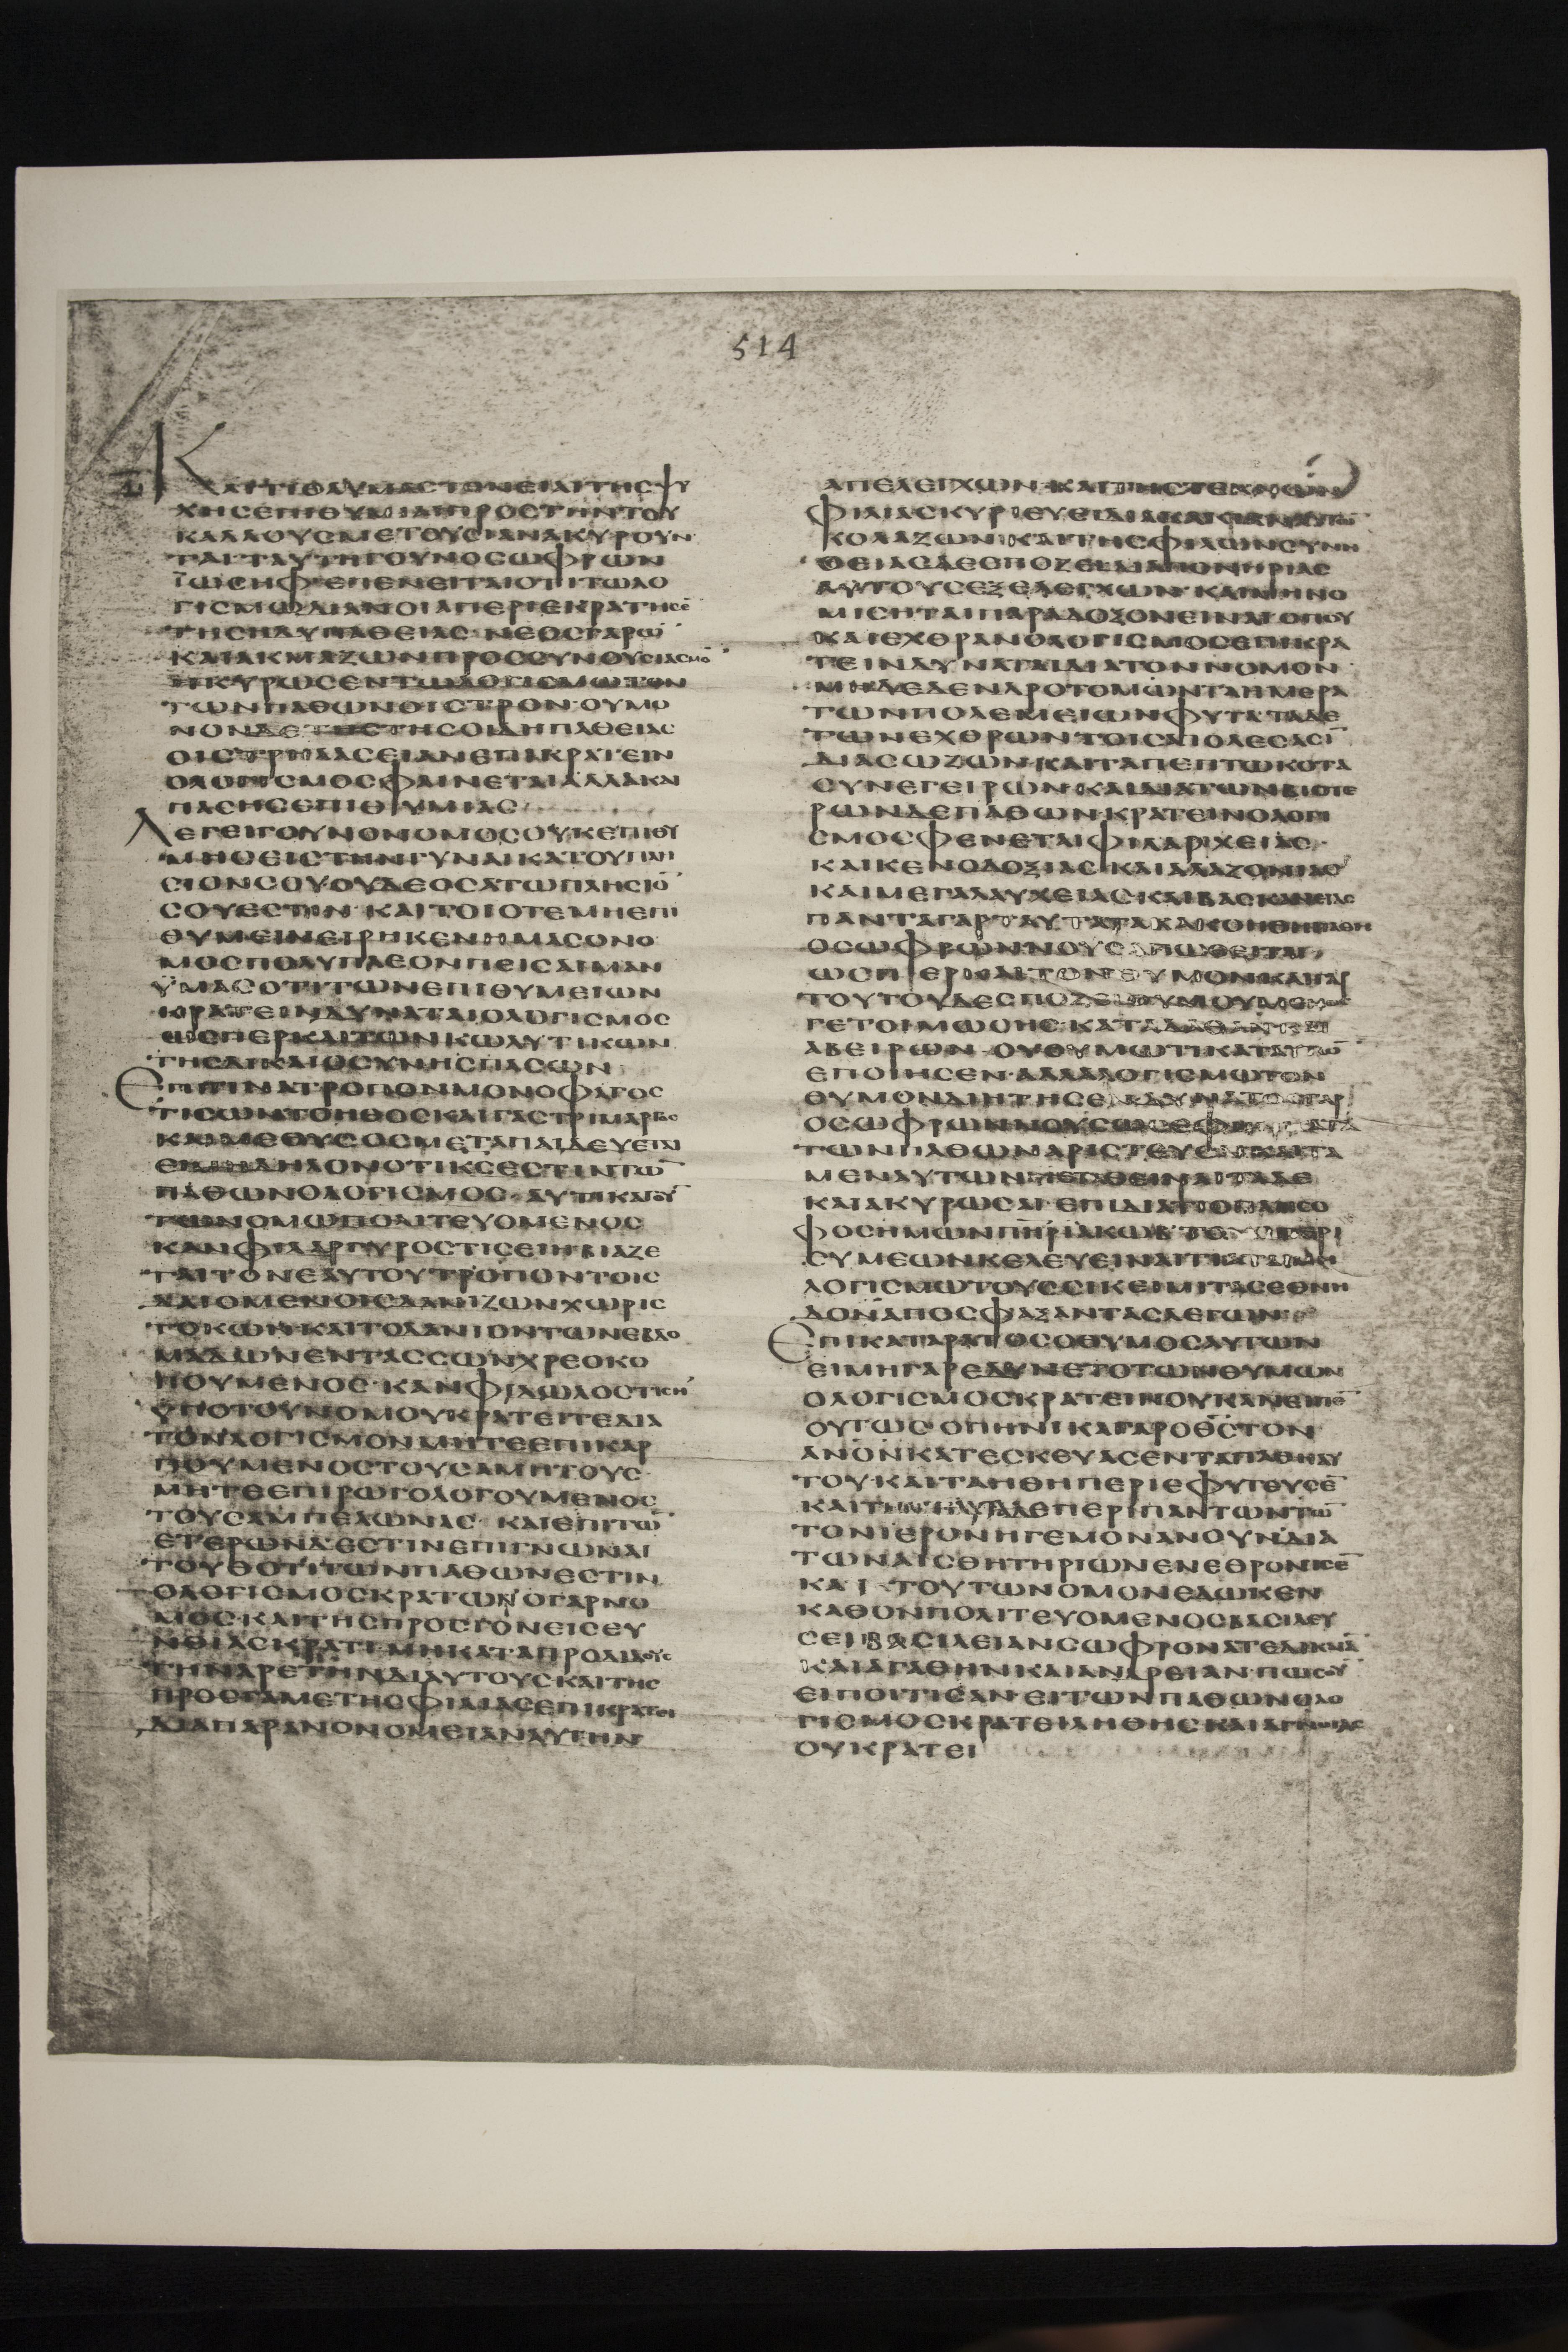 514
ΚΑΙΤΙΘΑΥΜΑСΤΟΝΕΙΑΙΤΗСΨΥ
ΧΗСΕΠΙΘΥΜΙΑΙΠΡΟСΤΗΝΤΟΥ
ΚΑΛΛΟΥСΜΕΤΟΥСΙΑΝΑΚΥΡΟΥΝ
ΤΑΙ·ΤΑΥΤΗΓΟΥΝΟСΩΦΡΩΝ
ΪΩСΗΦΕΠΕΝΕΙΤΑΙΟΤΙΤΩΛΟ
ΓΙСΜΩΔΙΑΝΟΙΑΠΕΡΙΕΚΡΑΤΗСΕ̄
ΤΗСΗΔΥΠΑΘΕΙΑС·ΝΕΟСΓΑΡΩ̄
ΚΑΙΑΚΜΑΖΩΝΠΡΟССΥΝΟΥСΙΑСΜΟ̄
ΗΚΥΡΩСΕΝΤΩΛΟΓΙСΜΩΤΟΝ
ΤΩΝΠΑΘΩΝΟΙСΤΡΟΝ·ΟΥΜΟ
ΝΟΝΔΕΤΗСΤΗСΟΙΔΗΠΑΘΕΙΑС
ΟΙСΤΡΗΛΑСΕΙΑΝΕΠΙΚΡΑΤΕΙΝ
ΟΛΟΓΙСΜΟСΦΑΙΝΕΤΑΙΑΛΛΑΚΑΙ
ΠΑСΗСΕΠΙΘΥΜΙΑС
ΛΕΓΕΙΓΟΥΝΟΝΟΜΟСΟΥΚΕΠΙΘΥ
ΜΗСΕΙСΤΗΝΓΥΝΑΙΚΑΤΟΥΠΛΗ
СΙΟΝСΟΥ·ΟΥΔΕΟСΑΤΩΠΛΗСΙΟ̄
СΟΥΕСΤΙΝ·ΚΑΙΤΟΙΟΤΕΜΗΕΠΙ
ΘΥΜΕΙΝΕΙΡΗΚΕΝΗΜΑСΟΝΟ
ΜΟСΠΟΛΥΠΛΕΟΝΠΕΙСΑΙΜΑΝ
ΫΜΑСΟΤΙΤΩΝΕΠΙΘΥΜΕΙΩΝ
ΚΡΑΤΕΙΝΔΥΝΑΤΑΙΟΛΟΓΙСΜΟС
ΩСΠΕΡΚΑΙΤΩΝΚΩΛΥΤΙΚΩΝ
ΤΗСΔΙΚΑΙΟСΥΝΗСΠΑСΩΝ
ΕΠΙΤΙΝΑΤΡΟΠΟΝΜΟΝΟΦΑΓΟС
ΤΙСΩΝΤΟΗΘΟСΚΑΙΓΑСΤΡΙΜΑΡΓΟС
ΚΑΙΜΕΘΥСΟСΜΕΤΑΠΑΙΔΕΥΕΙΑΙ
ΕΙΜΗΔΗΛΟΝΟΤΙΚСΕСΤΙΝΤΩ̄
ΠΑΘΩΝΟΛΟΓΙСΜΟС·ΑΥΤΙΚΑΓΟῩ
ΤΩΝΟΜΩΠΟΛΙΤΕΥΟΜΕΝΟС
ΚΑΝΦΙΛΑΡΓΥΡΟСΤΙСΕΙΗΒΙΑΖΕ
ΤΑΙΤΟΝΕΑΥΤΟΥΤΡΟΠΟΝΤΟΙС
ΔΑΙΟΜΕΝΟΙСΔΑΝΙΖΩΝΧΩΡΙС
ΤΟΚΩΝ·ΚΑΙΤΟΔΑΝΙΟΝΤΩΝΕΒΔΟ
ΜΑΔΩΝΕΝΤΑССΩΝΧΡΕΟΚΟ
ΠΟΥΜΕΝΟС·ΚΑΝΦΙΔΩΛΟСΤΙСΗ
ΫΠΟΤΟΥΝΟΜΟΥΚΡΑΤΕΙΤΕΔΙΑ
ΤΟΝΛΟΓΙСΜΟΝΜΗΤΕΕΠΙΚΑΡ
ΠΟΥΜΕΝΟСΤΟΥСΑΜΗΤΟΥС·
ΜΗΤΕΕΠΙΡΩΓΟΛΟΓΟΥΜΕΝΟС
ΤΟΥСΑΜΠΕΛΩΝΑС·ΚΑΙΕΠΙΤΩ̄
ΕΤΕΡΩΝΔΕСΤΙΝΕΠΙΓΝΩΝΑΙ
ΤΟΥΘΟΤΙΤΩΝΠΑΘΩΝΕСΤΙΝ
ΟΛΟΓΙСΜΟСΚΡΑΤΩΝΟΓΑΡΝΟ
ΜΟС·ΚΑΙΤΗСΠΡΟСΓΟΝΕΙСΕΥ
ΝΟΙΑСΚΡΑΤΙΜΗΚΑΤΑΠΡΟΔΙΔΟΥС
ΤΗΝΑΡΕΤΗΝΔΙΑΥΤΟΥСΚΑΙΤΗС
ΠΡΟСΓΑΜΕΤΗСΦΙΛΙΑСΕΠΙΚΡΑΤΕΙ
ΔΙΑΠΑΡΑΝΟΝΟΜΕΙΑΝΑΥΤΗΝ
ΑΠΕΛΕΓΧΩΝ·ΚΑΙΤΗСΤΕΚΝΩΝ
ΦΙΛΙΑСΚΥΡΙΕΥΕΙΔΙΑΚΑΚΙΑΝΑΥΤΑ
ΚΟΛΑΖΩΝ·ΚΑΙΤΗСΦΙΛΩΝСΥΝΗ
ΘΕΙΑСΔΕСΠΟΖΕΙΔΙΑΠΟΝΗΡΙΑС
ΑΥΤΟΥСΕΞΕΛΕΓΧΩΝ·ΚΑΙΜΗΝΟ
ΜΙСΗΤΑΙΠΑΡΑΔΟΞΟΝΕΙΝΑΙΟΠΟΥ
ΚΑΙΕΧΘΡΑΝΟΛΟΓΙСΜΟСΕΠΙΚΡΑ
ΤΕΙΝΔΥΝΑΤΑΙΔΙΑΤΟΝΝΟΜΟΝ·
ΜΗΔΕΔΕΝΔΡΟΤΟΜΩΝΤΑΗΜΕΡΑ
ΤΩΝΠΟΛΕΜΕΙΩΝΦΥΤΑ·ΤΑΔΕ
ΤΩΝΕΧΘΡΩΝΤΟΙСΑΠΟΛΕСΑСῙ
ΔΙΑСΩΖΩΝ·ΚΑΙΤΑΠΕΠΤΩΚΟΤΑ
СΥΝΕΓΕΙΡΩΝ·ΚΑΙΔΙΑΤΩΝΒΙΟΤΕ
ΡΩΝΔΕΠΑΘΩΝ·ΚΡΑΤΕΙΝΟΛΟΓΙ
СΜΟСΦΕΝΕΤΑΙΦΙΛΑΡΙΧΕΙΑС·
ΚΑΙΚΕΝΟΔΟΞΙΑС·ΚΑΙΑΛΑΖΟΝΙΑС
ΚΑΙΜΕΓΑΛΑΥΧΕΙΑС·ΚΑΙΒΑСΚΑΝΕΙΑС
ΠΑΝΤΑΓΑΡΤΑΥΤΑΤΑΚΑΚΟΗΘΗΠΑΘΗ
ΟСΩΦΡΩΝΝΟΥСΑΠΩΘΕΙΤΑΙ
ΩСΠΕΡΚΑΙΤΟΝΘΥΜΟΝ·ΚΑΙΓΑΡ
ΤΟΥΤΟΥΔΕСΠΟΖΕΙΘΥΜΟΥΜΕΝΟС
ΓΕΤΟΙΜΩСΗСΚΑΤΑΔΑΘΑΝ
ΑΒΕΙΡΩΝ·ΟΥΘΥΜΩΤΙΚΑΤΑΥΤΩ̄
ΕΠΟΙΗСΕΝ·ΑΛΛΑΛΟΓΙСΜΩΤΟΝ
ΘΥΜΟΝΔΙΗΤΗСΕΝΔΥΝΑΤΟСΓΑΡ
ΟСΩΦΡΩΝΝΟΥСΩСΕΦ
ΤΩΝΠΑΘΩΝΑΡΙСΤΕΥС
ΜΕΝΑΥΤΩΝΜΕΤΑΘΕΙΝΑΙΤΑΔΕ
ΚΑΙΑΚΥΡΩСΑΙ·ΕΠΙΔΙΑΤΙΟΠΑΝСΟ
ΦΟСΗΜΩΝΠΗΡΙΑΚΩΒ·ΤΟΥСΠΕΡΙ
СΥΜΕΩΝΚΕΛΕΥΕΙΝΑΙΤΙΑΤΑΙΜΗ
ΛΟΓΙСΜΩΤΟΥССΙΚΕΙΜΙΤΑСΕΘΝΗ
ΔΟΝΑΠΟСΦΑΞΑΝΤΑСΛΕΓΩΝ
ΕΠΙΚΑΤΑΡΑΤΟСΟΘΥΜΟСΑΥΤΩΝ
ΕΙΜΗΓΑΡΕΔΥΝΕΤΟΤΩΝΘΥΜΩΝ
ΟΛΟΓΙСΜΟСΚΡΑΤΕΙΝΟΥΚΑΝΕΙΠΕ̄
ΟΥΤΩС·ΟΠΗΝΙΚΑΓΑΡΟΘ̄СΤΟΝ
ΑΝΟΝΚΑΤΕСΚΕΥΑСΕΝΤΑΠΑΘΗΑΥ
ΤΟΥ·ΚΑΙΤΑΗΘΗΠΕΡΙΕΦΥΤΕΥСΕ̄
ΚΑΙΤΗΝΗΔΕΠΕΡΙΠΑΝΤΩΝΤΩ̄
ΤΟΝΙΕΡΟΝΗΓΕΜΟΝΑΝΟΥΝΔΙΑ
ΤΩΝΑΙСΘΗΤΗΡΙΩΝΕΝΕΘΡΟΝΙСΕ̄
ΚΑΙ·ΤΟΥΤΩΝΟΜΟΝΕΔΩΚΕΝ
ΚΑΘΟΝΠΟΛΙΤΕΥΟΜΕΝΟСΒΑСΙΛΕΥ
СΕΙΒΑСΙΛΕΙΑΝСΩΦΡΟΝΑΤΕΔΙΚΑΙᾹ
ΚΑΙΑΓΑΘΗΝΚΑΙΑΝΔΡΕΙΑΝ·ΠΩСΟῩ
ΕΙΠΟΙΤΙСΑΝ·ΕΙΤΩΝΠΑΘΩΝΟΛΟ
ΓΙСΜΟСΚΡΑΤΕΙΛΗΘΗСΚΑΙΑΓΝΟΙΑС
ΟΥΚΡΑΤΕΙ